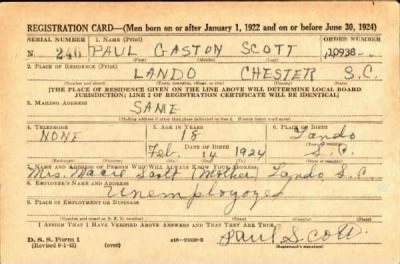 REGISTRATION CARD—(Men born on or after January 1, 1922 and on or before June 30, 1924)
SERIAL NUMBER 1. NAME (Print) ORDER NUMBER
N. 240 PAUL GASTON SCOTT 10938
(First) (Middle) (Last)
2. PLACE OF RESIDENCE (Print)
LANDO CHESTER S.C.
(Number and street) (Town, township, village, or city) (County) (State)
[THE PLACE OF RESIDENCE GIVEN ON THE LINE ABOVE WILL DETERMINE LOCAL BOARD
JURISDICTION; LINE 2 OF REGISTRATION CERTIFICATE WILL BE IDENTICAL]
3. MAILING ADDRESS
SAME
[Mailing address if other than place indicated on line 2. If same insert word same]
4. TELEPHONE 5. AGE IN YEARS 6. PLACE OF BIRTH
NONE 18 Lando
DATE OF BIRTH
Feb. 14 1924 S.C.
7. NAME AND ADDRESS OF PERSON WHO WILL ALWAYS KNOW YOUR ADDRESS
Mrs. Macie Scott (Mother) Lando S.C.
8. EMPLOYER'S NAME AND ADDRESS
Unemployoyed
9. PLACE OF EMPLOYMENT OR BUSINESS
I AFFIRM THAT I HAVE VERIFIED ABOVE ANSWERS AND THAT THEY ARE TRUE.
D. S. S. Form 1
(Revised 6-1-42) (over) Paul Scott
(Registrant's signature)